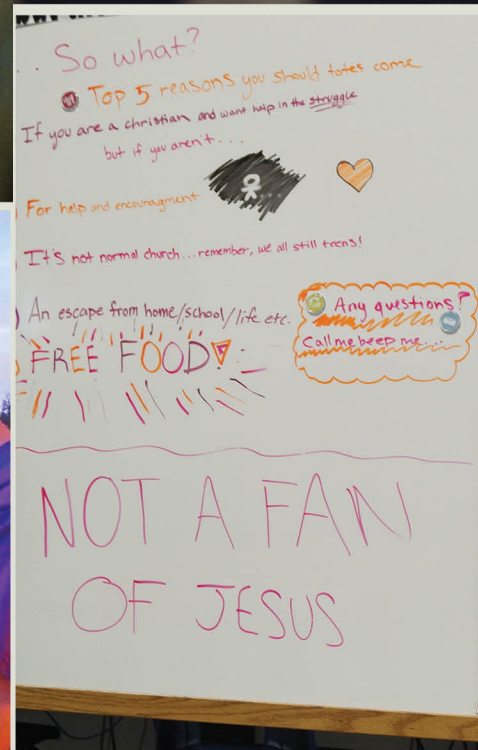 . . So what?
Top 5 reasons you should totes come
If you are a christian and want help in the struggle
but if you aren't . . .
) For help and encouragment
It's not normal church...remember, we all still teens!
) An escape from home/school/life etc.
FREE FOOD!
Any questions?
Call me beep me...
NOT A FAN
OF JESUS